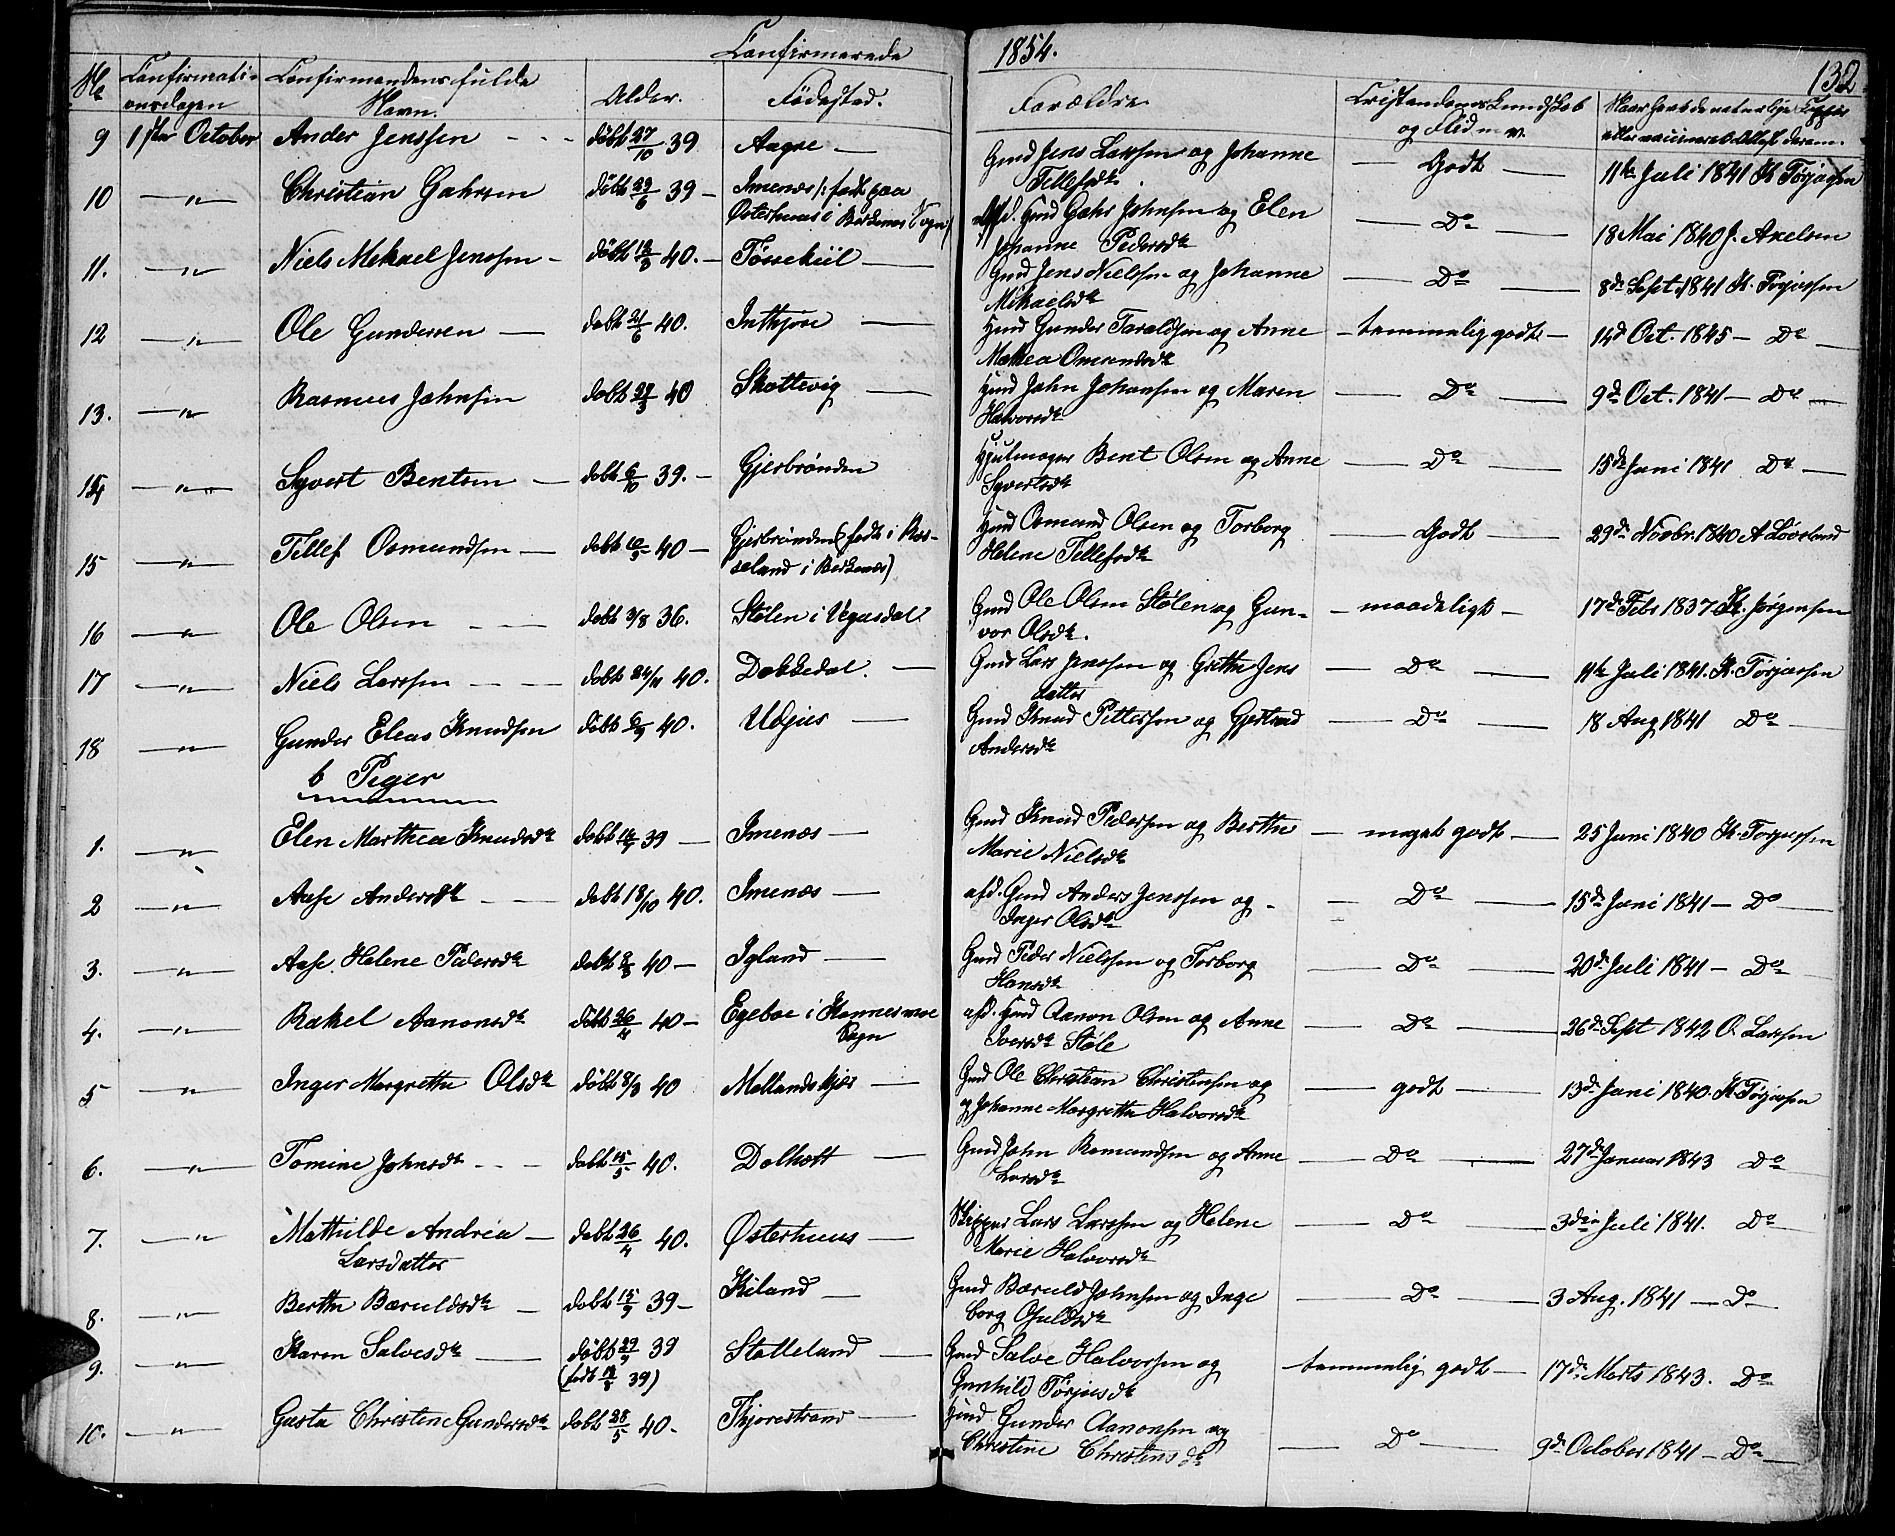 Confirmerede 1854.
132.
No Confirmations-dagen Confirmandens fulde Navn. Alder. Fødested. Forældre Cristendoms Kundskab og Flid m. v. Naar havt de naturlige Kopper eller vaccineret Attest derom.
9 1ste October Ander Jenssen døbt 27/10 39 Aagre Gmd Jens Larssen og Johanne Tellefsdtr. Godt 11te Juli 1841 K Tørjussen
10 " Christian Gahrsen døbt 29/6 39 Imenæs (: født paa Østerhuus i Birkenæs Sogn) afd. Hmd Gahr Johnsen og Elen Johanne Pedersdtr Do 18 Mai 1840 J. Axelsen
11. " Niels Mikael Jenssen døbt 13/9 40. Tøssekiil Gmd Jens Nielssen og Johanne Mikaelsdtr Do 8de Sept. 1841 K. Tørjussen
12 " Ole Gundersen døbt 21/6 40. Inthjore Hmd Gunder Taraldsen og Anne Mathea Omundsdtr temmelig godt 14de Oct. 1845 Do
13. " Rasmus Johnsen døbt 29/3 40 Skottevig Hmd John Johansen og Maren Halvorsdtr Do 9de Oct. 1841 Do
14 " Syvert Bentsen døbt 6/10 39. Gjerbrønden Hjulmager Bent Olsen og Anne Syvertsdtr Do 15de Juni 1841 Do
15 " Tellef Osmundsen døbt 10/5 40 Gjerbrønden (født i Risseland i Birkenæs) Hmd Osmund Olsen og Torborg Helene Tellefsdtr Godt 29de Novbr. 1840 A Løveland
16 " Ole Olsen døbt 3/8 36. Stølen i Vegusdal Gmd Ole Olsen Stølen og Gunvor Olsdtr. maadeligt 17de Febr 1837 K. Jørgensen
17 " Niels Larssen døbt 24/11 40. Dækkedal. Gmd Lars Jenssen og Grethe Jensdatter Do 11te Juli 1841. K. Tørjussen
18 " Gunder Eleas Knudsen døbt 6/9 40. Udjus Gmd Knud Pettersen og Gjertrud Andersdtr Do 18 Aug 1841 Do
b Piger
1. " Elen Marthea Knudsdtr døbt 14/7 39 Imenæs Gmd Knud Pedersen og Berthe Marie Nielsdtr meget godt 25 Juni 1840 K. Tørjussen
2 " Aase Andersdtr døbt 18/10 40. Imenæs afd. Gmd Anders Jenssen og Inger Olsdtr Do 15de Juni 1841 Do
3. " Aase Helene Pedersdtr døbt 2/8 40 Igland Gmd Peder Nielssen og Torborg Hansdtr Do 20de Juli 1841 Do
4. " Rakel Aanonsdtr døbt 26/4 40 Egeboe i Hannesmoe Sogn afd. Hmd Aanon Olsen og Anne Iversdtr Støle Do 26de Sept 1842 O. Larssen
5 " Inger Margrethe Olsdtr døbt 8/3 40 Mollandskjær Gmd Ole Christian Christensen og og Johanne Margrethe Halvorsdtr godt 13de Juni 1840. K. Tørjussen
6. " Tomine Johnsdtr døbt 15/5 40. Dolholt Gmd John Romundsen og Anne Larsdtr Do 27de Januar 1843 Do
7. " Mathilde Andréa Larsdatter døbt 26/4 40. Østerhuus Skipper Lars Larssen og Helene Marie Halvorsdtr Do 3die Juli 1841. Do
8. " Berthe Baruldsdtr døbt 15/9 39 Kiland Gmd Baruld Johnsen og Ingeborg Ofuldsdtr Do 3 Aug. 1841 Do
9. " Karen Salvesdtr døbt 29/9 39 (født 19/8 39) Stalleland Gmd Salve Halvorsen og Gunhild Tørjusdtr temmelig godt 17de Marts 1843. Do
10. " Gusta Christine Gundersdtr døbt 28/5 40. Kjorestrand Hmd Gunder Aanonsen og Christine Christensdtr Do 9de October 1841 Do